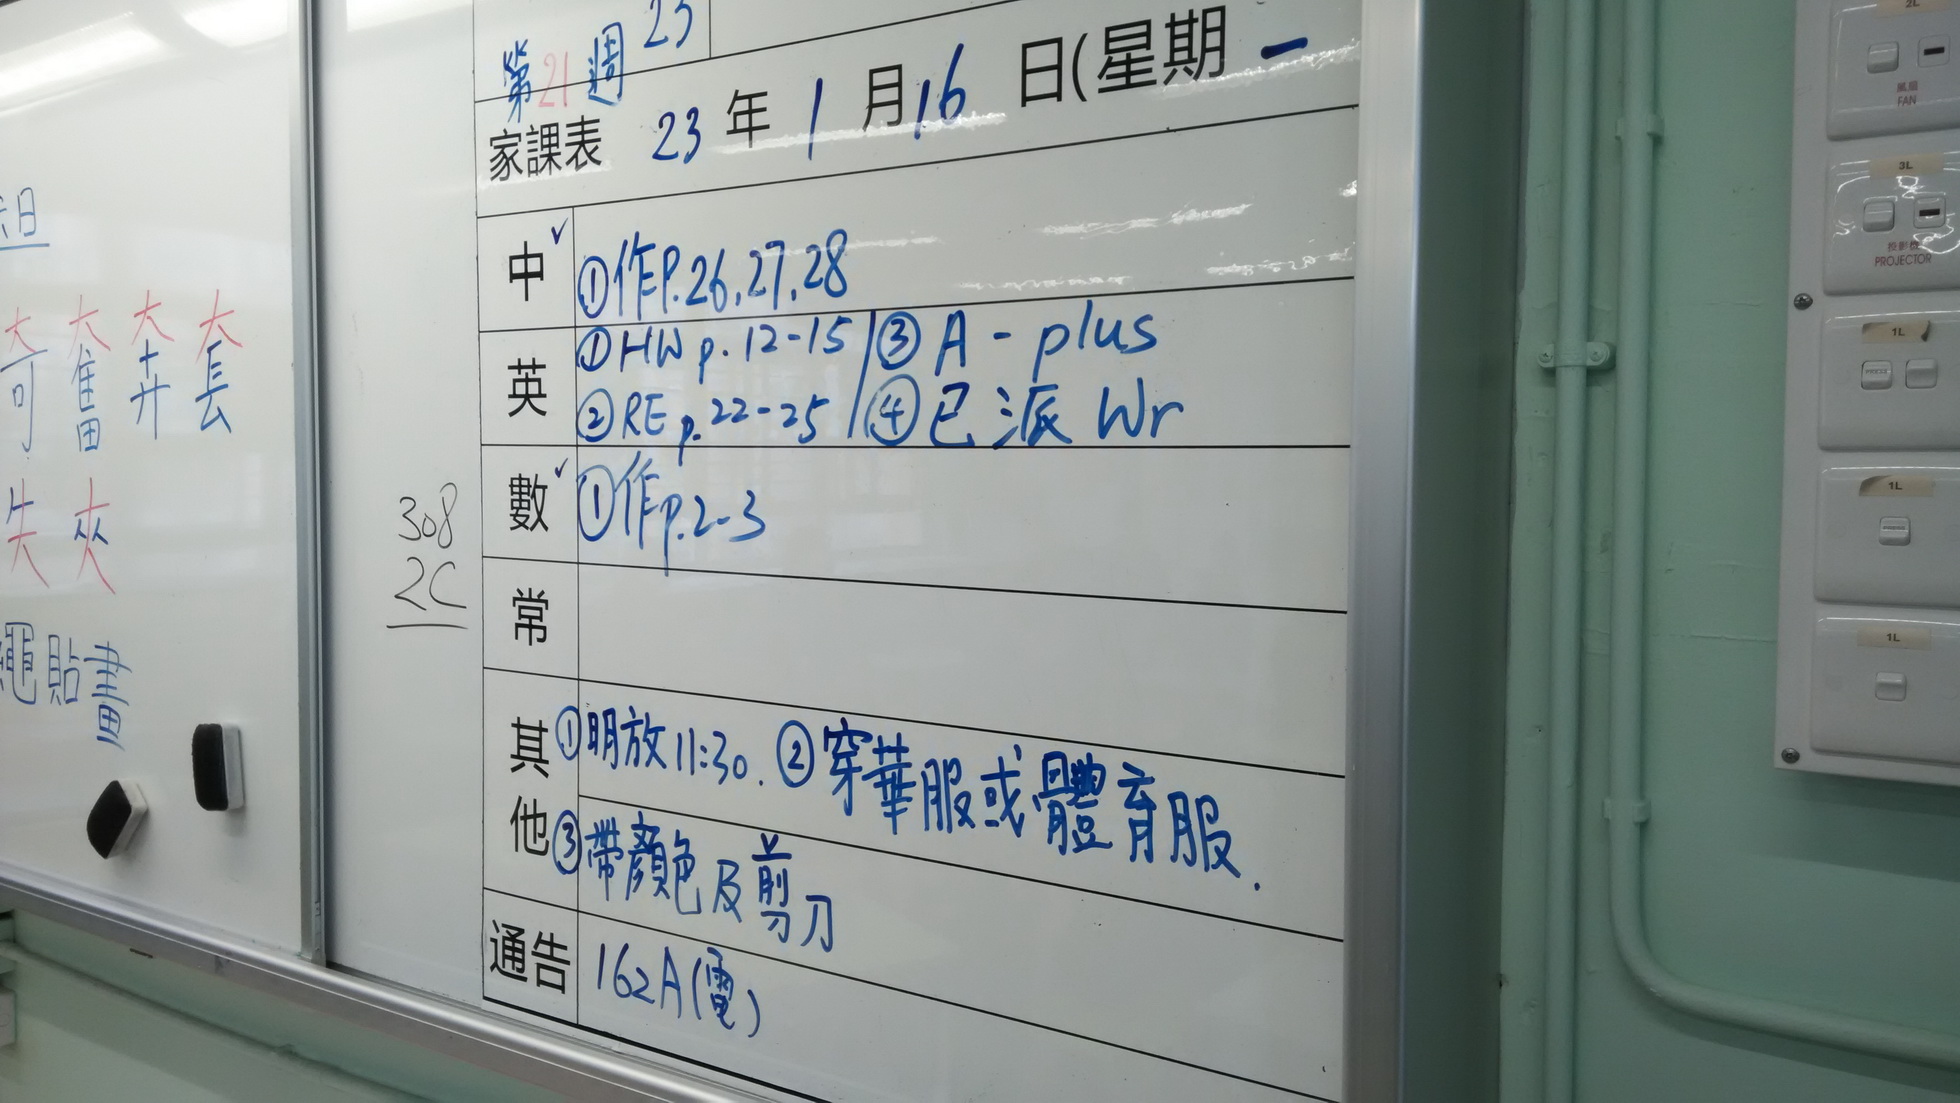 日
大 大 大
可 奮 卉 套
失 夾
繩貼畫
308
2C
第21週
23
家課表 23 年 1 月 16 日(星期 一
中 ✓ ①作P.26,27,28
英 ①HW p.12-15 / ③ A - plus
②RE p.22-25 / ④ 已派 Wr
數 ✓ ①作p.2-3
常
其他 ①明放11:30. ②穿華服或體育服.
③帶顏色及剪刀
通告 162A(電)
2L
風扇
FAN
3L
投影機
PROJECTOR
1L
PRESS
1L
PRESS
1L